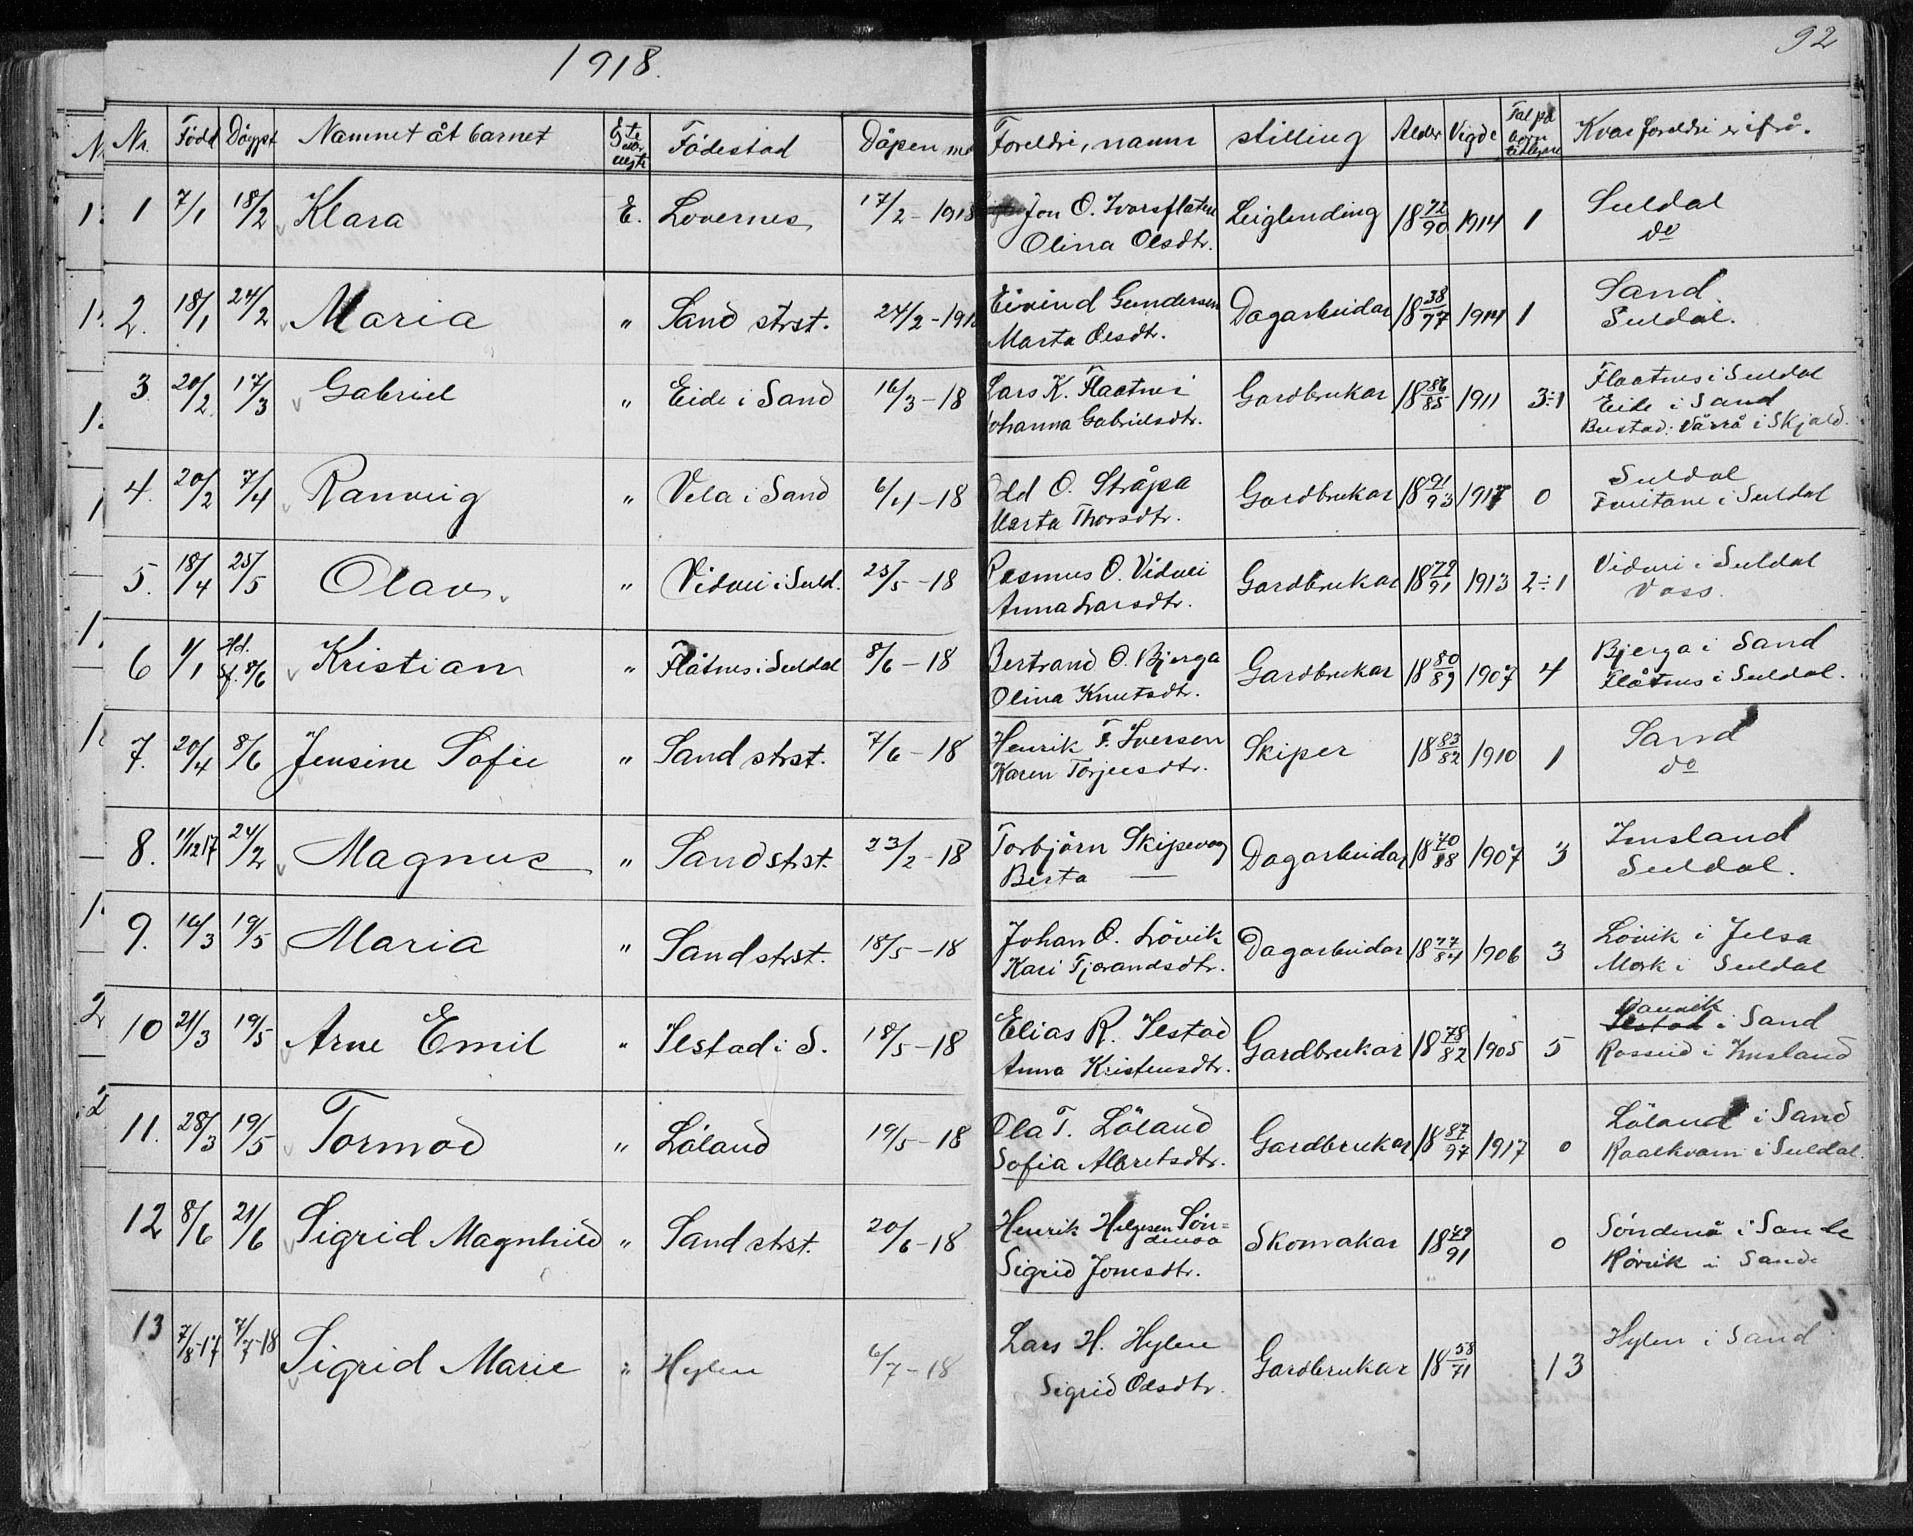 1918.
92
Nr. Född Döypt Namnet åt barnet Födestad Dåpen me Foreldri, namn stilling Alder Vigde Tal på born tidlegare Kvar foreldri er ifrå.
1 7/1 18/2 Klara E. Lovernes 17/2-1918 Jon O. Ivarsflaten Leiglending 18 72/90 1914 1 Suldal
Olina Olsdtr. do
2. 18/1 24/2 Maria " Sand strst. 24/2-191 Eivind Gundersen Dagarbeidar 18 38/77 1914 1 Sand.
Marta Olsdtr. Suldal.
3. 20/2 17/3 Gabriel " Eide i Sand 16/3-18 Lars K. Flaatnes Gardbrukar 18 86/85 1911 3÷1 Flaatnes i Suldal
Johanna Gabrielsdtr. Eide i Sand
Bustad: Vårrå i Skjold.
4. 20/2 7/4 Ranveig " Vela i Sand 6/4-18 Odd O. Stråpa Gardbrukar 18 91/93 1917 0 Suldal
Marta Thorsdtr. Foreitane i Suldal
5. 18/4 25/5 Olav " Vidvei i Suld. 25/5-18 Rasmus O. Vidvei Gardbrukar 18 72/91 1913 2÷1 Vidvei i Suldal
Anna Larsdtr. Voss.
6 1/1 Hd. Sf. 8/6 Kristian " Flåtnes i Suldal 8/6-18 Bertrand O. Bjerga Gardbrukar 18 80/89 1907 4 Bjerga i Sand
Olina Knutsdtr. Flåtnes i Suldal.
7. 20/4 8/6 Jensine Sofie " Sand strst. 7/6-18 Henrik F. Iversen Skiper 18 83/82 1910 1 Sand
Karen Torjersdtr. do
8. 11/12 17 24/2 Magnus " Sand strst. 23/2-18 Torbjörn Skipevag Dagarbeidar 18 70/88 1907 3 Imsland
Berta — Suldal.
9. 16/3 19/5 Maria " Sand strst. 18/5-18 Johan O. Lövik Dagarbeidar 18 77/84 1906 3 Lövik i Jelsa
Kari Tjerandsdtr. Mork i Suldal
10 21/3 19/5 Arne Emil " Ilstad i S. 18/5-18 Elias R. Ilstad Gardbrukar 18 78/82 1905 5 i Sand
Anna Kristensdtr. Rosseid i Imsland
11. 28/3 19/5 Tormod " Löland 19/5-18 Ola T. Löland Gardbrukar 18 87/97 1917 0 Löland i Sand
Sofia Albretsdtr. Raalkvam i Suldal.
12 8/6 21/6 Sigrid Magnhild " Sand strst. 20/6-18 Henrik Helgesen Sön=
denaa Skomakar 18 79/91 0 Söndenå i Sande
Sigrid Jonesdtr. Rörvik i Sande
13 7/8-17 7/7-18 Sigrid Marie " Hylen 6/7-18 Lars H. Hylen Gardbrukar 18 58/71 13 Hylen i Sand
Sigrid Olsdtr.